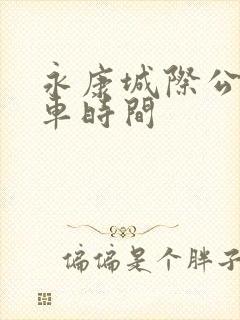 永康城際公
車時間
偏偏是个胖子